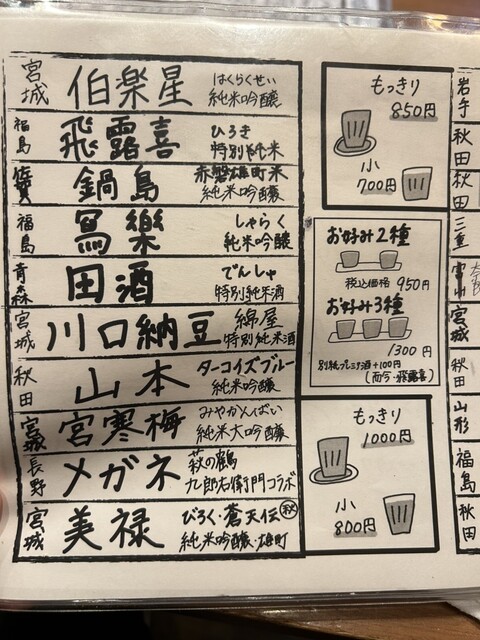 宮城 伯楽星 はくらくせい
純米吟醸
福島 飛露喜 ひろき
特別純米
佐賀 鍋島 赤磐雄町米
純米吟醸
福島 寫樂 しゃらく
純米吟醸
青森 田酒 でんしゅ
特別純米酒
宮城 川口納豆 綿屋
特別純米酒
秋田 山本 ターコイズブルー
純米吟醸
宮城 宮寒梅 みやかんばい
純米大吟醸
長野 メガネ 萩の鶴
九郎右衛門コラボ
宮城 美禄 びろく・蒼天伝 秋
純米吟醸・雄町
もっきり
850円
小
700円
お好み2種
税込価格 950円
お好み3種
1300円
別紙プレミア酒+100円
(而今・飛露喜)
もっきり
1000円
小
800円
岩手
秋田
秋田
三重
富山
宮城
秋田
山形
福島
秋田